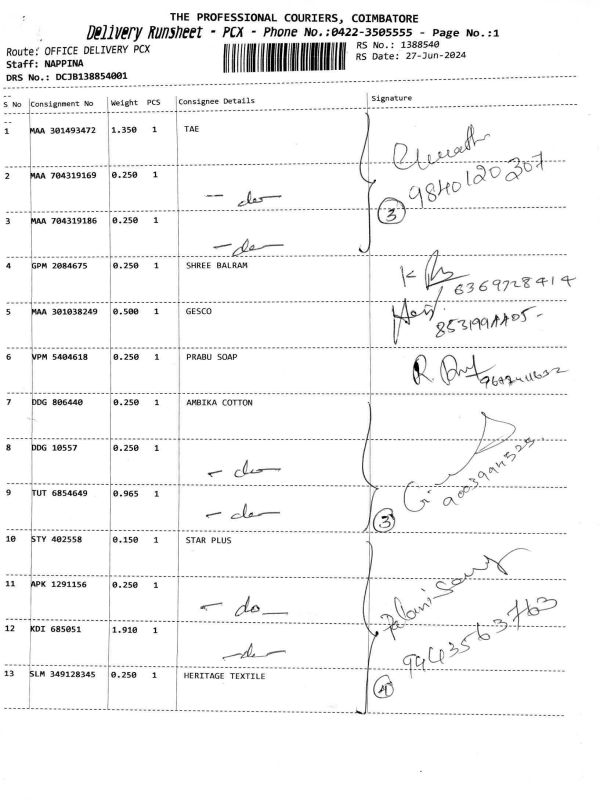 THE PROFESSIONAL COURIERS, COIMBATORE
Delivery Runsheet - PCX - Phone No.:0422-3505555 - Page No.:1
Route: OFFICE DELIVERY PCX
RS No.: 1388540
Staff: NAPPINA
RS Date: 27-Jun-2024
DRS No.: DCJB138854001
S No Consignment No Weight PCS Consignee Details Signature
1 MAA 301493472 1.350 1 TAE
2 MAA 704319169 0.250 1 - do
9840120307
3 MAA 704319186 0.250 1 - do
3
4 GPM 2084675 0.250 1 SHREE BALRAM
6369728414
5 MAA 301038249 0.500 1 GESCO
6 VPM 5404618 0.250 1 PRABU SOAP
7 DDG 806440 0.250 1 AMBIKA COTTON
8 DDG 10557 0.250 1 - do
9 TUT 6854649 0.965 1 - do
3
10 STY 402558 0.150 1 STAR PLUS
11 APK 1291156 0.250 1 - do -
12 KDI 685051 1.910 1 - do
9943563763
13 SLM 349128345 0.250 1 HERITAGE TEXTILE
4